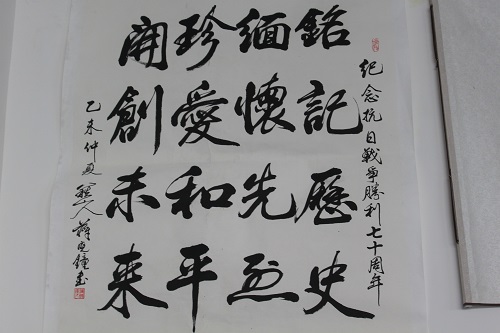 紀念抗日戰爭勝利七十周年
銘記歷史
緬懷先烈
珍愛和平
開創未来
乙未仲夏